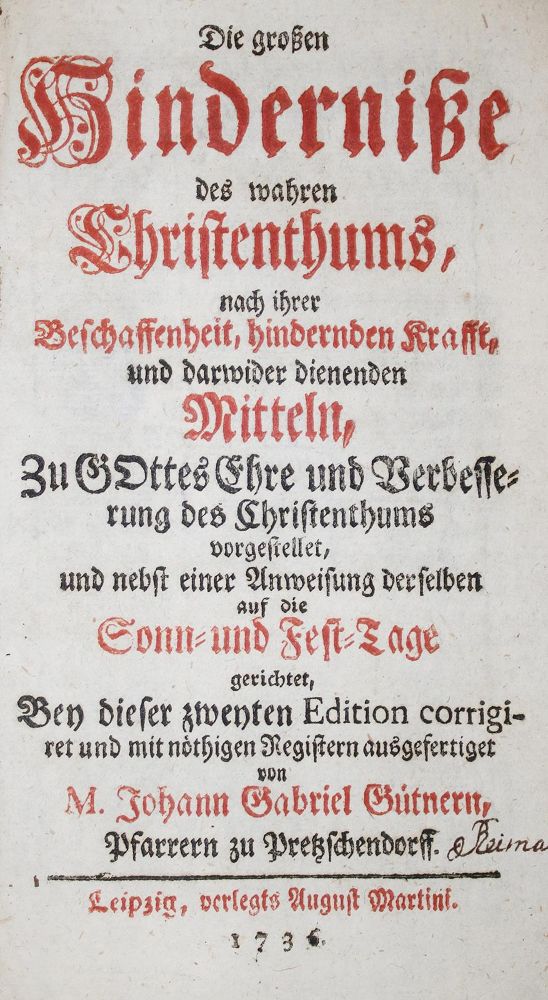 Die großen
Hinderniße
des wahren
Christenthums,
nach ihrer
Beschaffenheit, hindernden Krafft,
und darwider dienenden
Mitteln,
Zu GOttes Ehre und Verbesse=
rung des Christenthums
vorgestellet,
und nebst einer Anweisung derselben
auf die
Sonn= und Fest=Tage
gerichtet,
Bey dieser zweyten Edition corrigi-
ret und mit nöthigen Registern ausgefertiget
von
M. Johann Gabriel Gütnern,
Pfarrern zu Pretzschendorff.
Leipzig, verlegts August Martini.
1736.